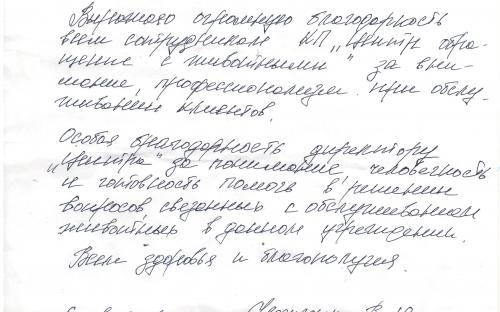 Выражаю огромную благодарность
всем сотрудникам КП „Центр обра-
щение с животными" за вни-
мание, профессионализм при обслу-
живании клиентов.
Особая благодарность директору
„Центра" за понимание, человечность
и готовность помочь в решении
вопросов связанных с обслуживанием
животных в данном учреждении.
Всем здоровья и благополучия.